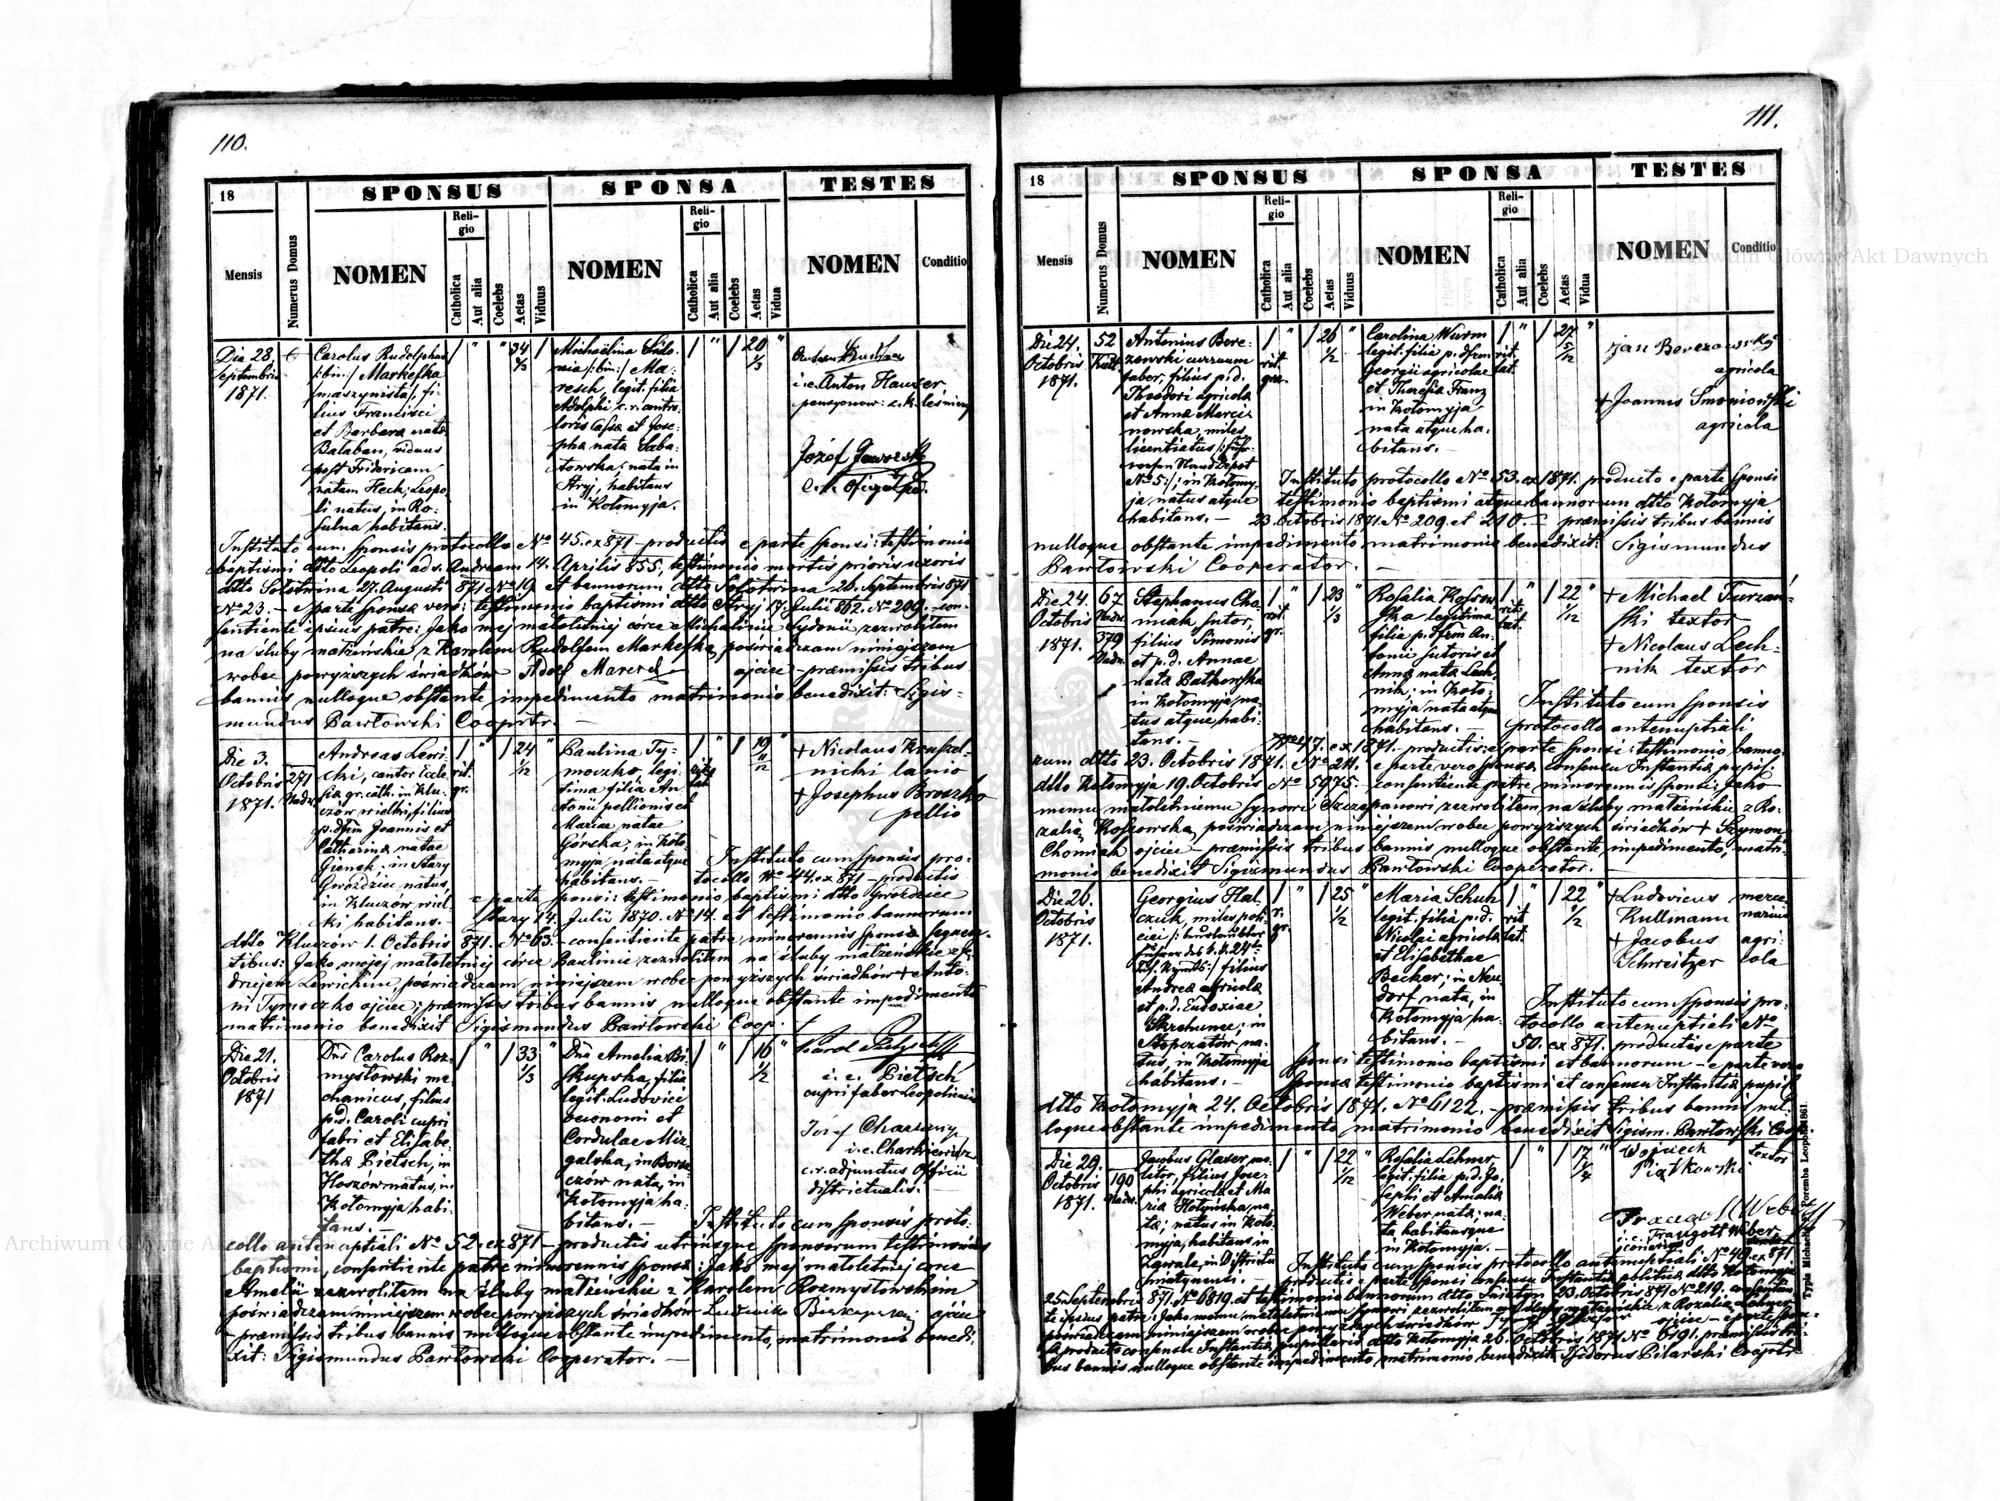 110.
18
SPONSUS
SPONSA
TESTES
Mensis
Numerus Domus
NOMEN
Religio
Catholica
Aut alia
Coelebs
Aetas
Viduus
NOMEN
Religio
Catholica
Aut alia
Coelebs
Aetas
Vidua
NOMEN
Conditio
Die 28.
Septembris
1871.
Carolus Rudolphus
/:bin:/ Markefka
maszynista, fi-
lius Francisci
et Barbara nata
Balaban, viduus
post Fridericam
natam Heck; Leopo-
li natus, in Ro-
sulna habitans.
34
Michaëlina Sido-
nia /:bin:/ Ma-
resch, legit. filia
Adolphi c. r. contro-
loris Cassa et Jose-
pha nata Saba-
towska; nata in
Stryj, habitans
in Kołomyja.
20
i.e. Anton Hauser
Józef Jaworski
Instituto cum sponsis protocollo No 45. ex 871 - productis e parte sponsi: testimonio
baptismi dtto Leopoli ad s. Andream 14. Aprilis 855, testimonio mortis prioris uxoris
dtto Sołotwina 27. Augusti 871 No 19 et bannorum dtto Sołotwina 26. Septembris 871
No 23. - e parte sponsa vero: testimonio baptismi dtto Stryj 17. Julii 862. No 209. con-
sentiente ipsius patre: Jako mej małoletniej córce Michalinie Sydonii zezwoliłem
na śluby małżeńskie z Karolem Rudolfem Markefka, poświadczam niniejszem
wobec powyższych świadków Adolf Maresch ojciec - præmissis tribus
bannis nulloque obstante impedimento matrimonio benedixit: Sigis-
mundus Bawłowski Cooprtr.
Die 3.
Octobris
1871.
271
Nadw.
Andreas Lewi-
cki, cantor Eccle-
siæ gr. cath. in Klu-
czów wielki, filius
p. dfm Joannis et
Catharina natae
Gienek; in Stary
Gwoździec natus,
in Kluczów wiel-
ki habitans.
rit.
gr.
24
1/2
Paulina Ty-
moczko, legi-
tima filia An-
tonii pellionis et
Mariae natae
Górska; in Koło-
myja nata atque
habitans.
19
11/12
+ Nicolaus Kraszel-
nicki lanio
+ Josephus Broszko
pellio
Instituto cum sponsis pro-
tocollo No 44. ex 871 - productis
e parte sponsi: testimonio baptismi dtto Gwoździec
Stary 14. Julii 1870. No 14. et testimonio bannorum
dtto Kluczów 1. Octobris 871. No 63. - consentiente patre minorennis sponsa sequen-
tibus: Jako mojej małoletniej córce Paulinie zezwoliłem na śluby małżeńskie z An-
drzejem Lewickim, poświadczam niniejszem wobec powyższych świadków + Anto-
ni Tymoczko ojciec; præmissis tribus bannis nulloque obstante impedimento
matrimonio benedixit Sigismundus Bawłowski Coop.
Die 21.
Octobris
1871
Dnus Carolus Roz-
mysłowski me-
chanicus, filius
p.d. Caroli cupri
fabri et Elisabe-
tha Pietsch, in
Hoszów natus, in
Kołomyja habi-
tans.
33
1/3
Dna Amelia Bi-
skupska, filia
legit. Ludovici
oeconomi et
Cordulae Miz-
galska, in Borsz-
czów nata, in
Kołomyja ha-
bitans.
16
1/2
i. e. Pietsch
cuprifaber Leopoliensis
i.e. Charkiewicz
c.r. adjunctus Officii
districtualis.
Instituto cum sponsis proto-
collo antenuptiali No 52. ex 871 - productis utriusque sponsorum testimoniis
baptismi, consentiente patre minorennis sponsa: Jako mej małoletniej córce
Amelii zezwoliłem na śluby małżeńskie z Karolem Rozmysłowskim
poświadczam niniejszem wobec powyższych świadków Ludwik Biskupski ojciec
- præmissis tribus bannis nulloque obstante impedimento, matrimonio benedi-
xit: Sigismundus Bawłowski Cooperator.
111.
18
SPONSUS
SPONSA
TESTES
Mensis
Numerus Domus
NOMEN
Religio
Catholica
Aut alia
Coelebs
Aetas
Viduus
NOMEN
Religio
Catholica
Aut alia
Coelebs
Aetas
Vidua
NOMEN
Conditio
Die 24.
Octobris
1871.
52
Antonius Bere-
zowski curruum
faber, filius p.d.
Theodori agricola
et Anna Marci-
nowska, miles
licentiatus
No 5:/; in Kołomy-
ja natus atque
habitans.
26
1/2
Carolina Wurm
legit. filia p. dfm
Georgii agricolae
et Theresia Franz
in Kołomyja
nata atque ha-
bitans.
rit.
lat.
27
5/12
Jan Berezowskyj
agricola
+ Joannes Smoniowski
agricola
Instituto protocollo No 53. ex 1871. producto e parte sponsi
testimonio baptismi atque bannorum dtto Kołomyja
23. Octobris 1871. No 209. et 210. - præmissis tribus bannis
nulloque obstante impedimento matrimonio benedixit: Sigismundus
Bawłowski Cooperator.
Die 24.
Octobris
1871.
67
Nadw.
379
Nadw.
Stephanus Cho-
miak sutor,
filius Simonis
et p.d. Annae
nata Batkowska
in Kołomyja na-
tus atque habi-
tans.
rit.
gr.
23
1/3
Rosalia Kossow-
ska legitima
filia p. dfm An-
tonii sutoris et
Anna nata Lech-
nik; in Koło-
myja nata atque
habitans.
rit.
lat.
22
1/12
+ Michael Turzań-
ski textor
+ Nicolaus Lech-
nik textor
Instituto cum sponsis
protocollo antenuptiali
No 47. ex 1871. - productis: e parte sponsi: testimonio banno-
rum dtto 23. Octobris 1871. No 211. - e parte vero sponsa consensu Instantia pupil.
dtto Kołomyja 19. Octobris No 5975. - consentiente patre minorennis sponsi: Jako
memu małoletniemu synowi Szczepanowi zezwoliłem na śluby małżeńskie z Ro-
zalią Kossowską, poświadczam niniejszem wobec powyższych świadków + Szymon
Chomiak ojciec - præmissis tribus bannis nulloque obstante impedimento, matri-
monio benedixit Sigismundus Bawłowski Cooperator.
Die 26.
Octobris
1871.
Georgius Hal-
czuk, miles poli-
ciei
filius
Andreæ agricola
et p.d. Eudoxiae
Skrehunec; in
Stopczatów na-
tus, in Kołomyja
habitans.
r.
gr.
25
1/2
Maria Schuh
legit. filia p.d.
Nicolai agricola
et Elisabethae
Becker; in Neu-
dorf nata, in
Kołomyja ha-
bitans.
rit
lat.
22
1/2
+ Ludovicus
Kullmann
+ Jacobus
Schweitzer
merce-
narius
agri-
cola
Instituto cum sponsis pro-
tocollo antenuptiali No
50. ex 871. productis e parte
sponsi testimonio baptismi et bannorum - e parte vero
sponsa testimonio baptismi et consensu Instantia pupil.
dtto Kołomyja 24. Octobris 1871. No 6122. - præmissis tribus bannis nul-
loque obstante impedimento, matrimonio benedixit Sigism. Bawłowski Coop.
Die 29.
Octobris
1871.
190
Nadw.
Jacobus Glaser, mo-
litor, filius Jose-
phi agricola et Ma-
ria Hotyńska na-
ta; natus in Koło-
myja, habitans in
Zawale, in Districtu
Śniatynensi.
22
1/12
Rosalia Lehner
legit. filia p.d. Jo-
sephi et Amalia
Weber nata; na-
ta habitansque
in Kołomyja.
17
1/4
Wojciech
Piątkowski
textor
i.e. Traugott Weber
Instituto cum sponsis protocollo antenuptiali No 49. ex 871
productis e parte sponsi consensu Instantia politica dtto Kołomyja
25. Septembris 871. No 6819. et testimonio bannorum dtto Śniatyn 23. Octobris 871 No 219. consentien-
te ipsius patre: Jako memu małoletniemu synowi zezwoliłem na śluby małżeńskie z Rozalią Lehner
poświadczam niniejszem wobec powyższych świadków
producto consensu Instantia pupillaris dtto Kołomyja 26. Octobris 1871. No 6191. præmissis tri-
bus bannis nulloque obstante impedimento matrimonio benedixit Isidorus Pilarski Cooptr
Typis Michaelis Poremba Leopoli 1861.
Archiwum Główne Akt Dawnych
Archiwum Główne Akt Dawnych